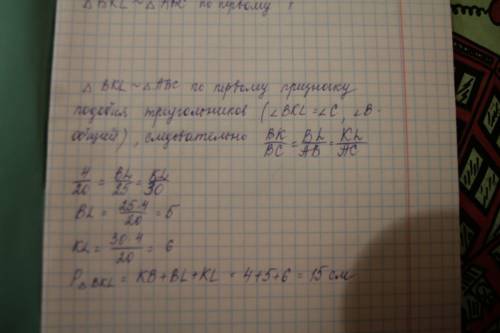 △ BKL ~ △ ABC по первому
△ BKL ~ △ ABC по первому признаку
подобия треугольников (∠BKL = ∠C, ∠B-
общий), следовательно BK/BC = BL/AB = KL/AC
4/20 = BL/25 = KL/30
BL = 25·4/20 = 5
KL = 30·4/20 = 6
P△BKL = KB + BL + KL = 4+5+6 = 15 см